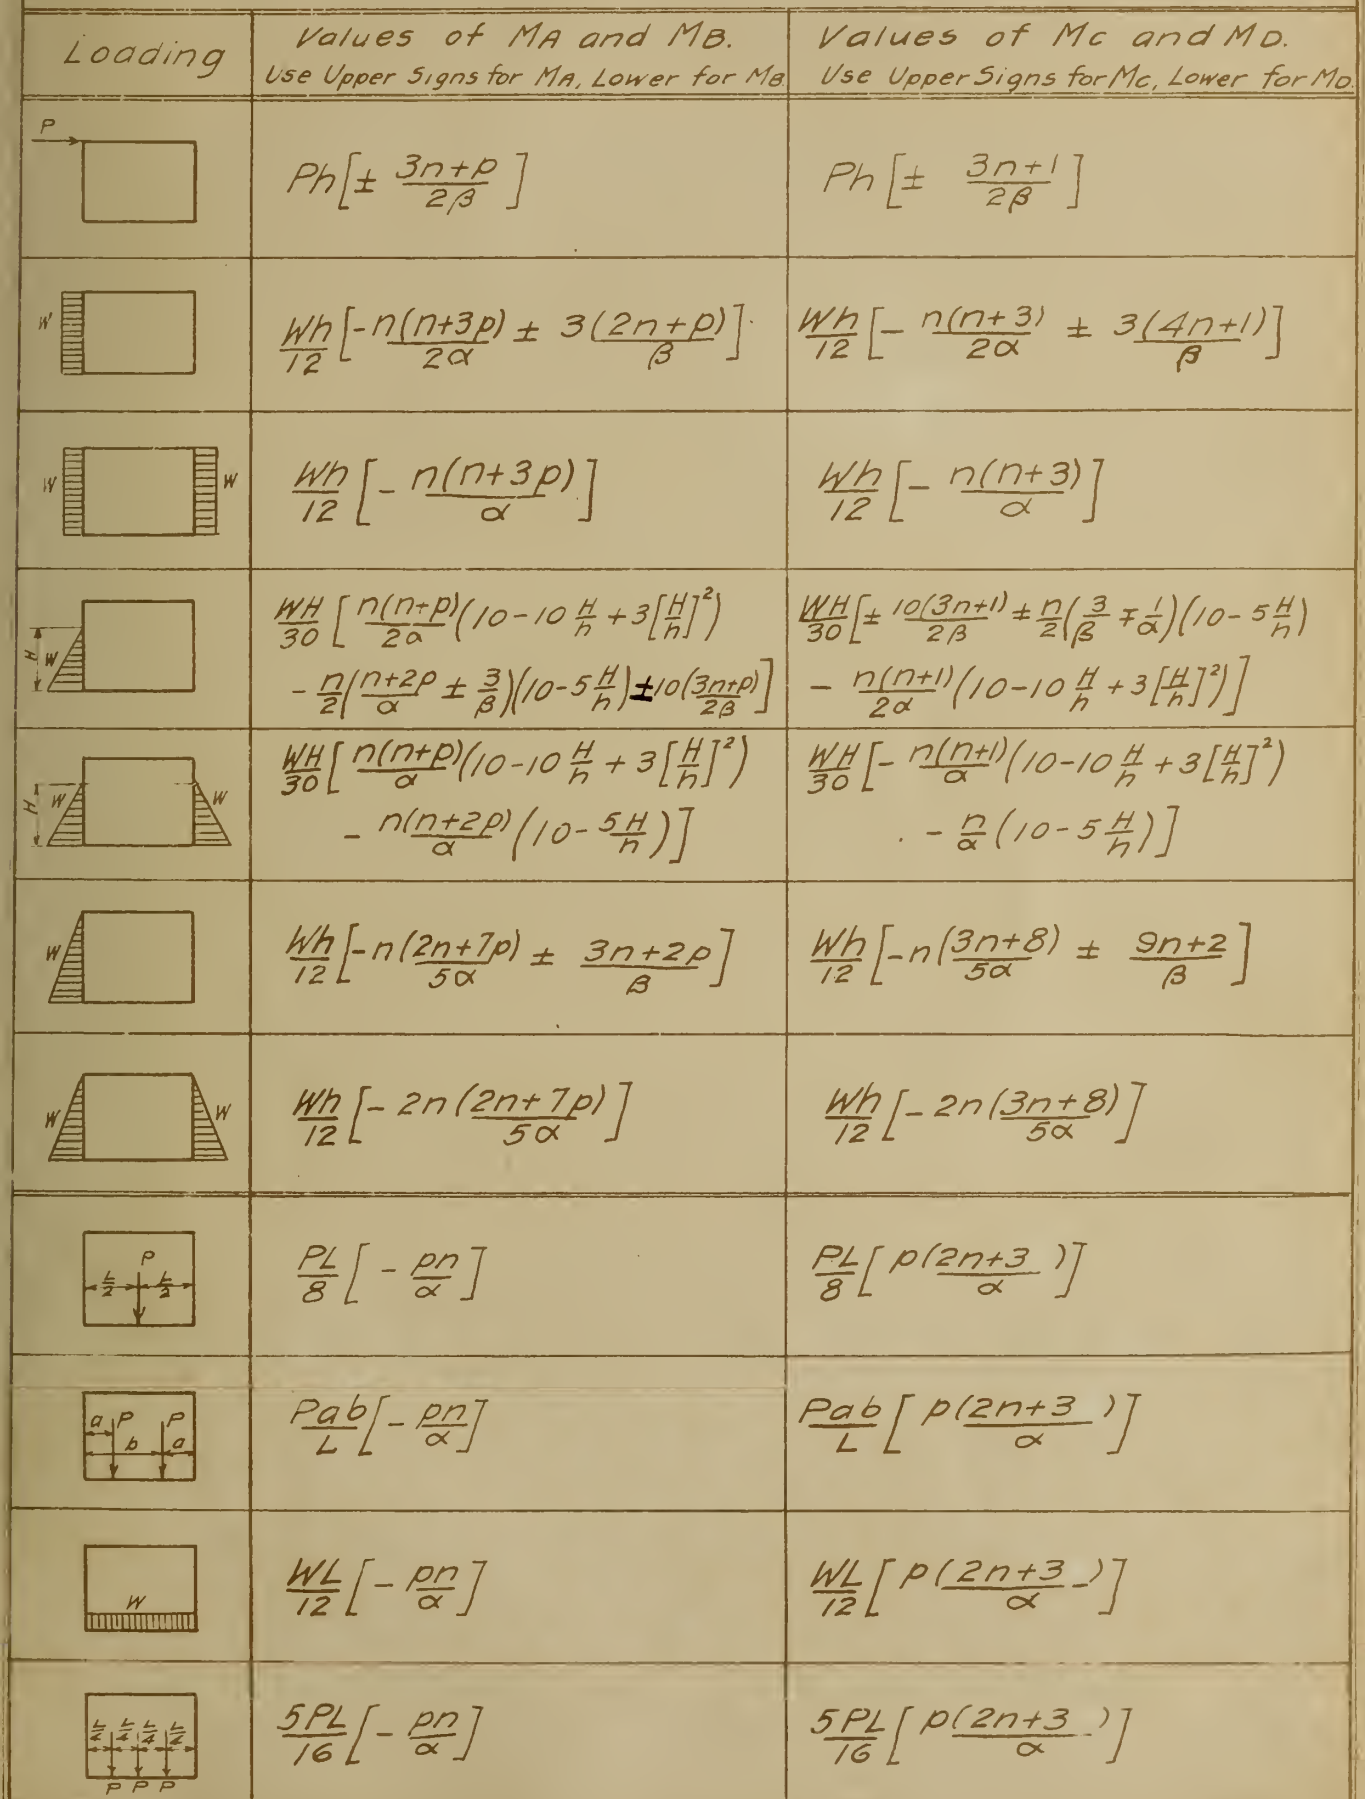 Loading
Values of MA and MB.
Use Upper Signs for MA, Lower for MB
Values of Mc and MD.
Use Upper Signs for Mc, Lower for MD.
P
Ph[± (3n+p)/2β]
Ph[± (3n+1)/2β]
W
Wh/12 [-n(n+3p)/2α ± 3(2n+p)/β]
Wh/12 [- n(n+3)/2α ± 3(4n+1)/β]
W W
Wh/12 [- n(n+3p)/α]
Wh/12 [- n(n+3)/α]
H W
WH/30 [n(n+p)/2α (10-10 H/h + 3[H/h]²)
- n/2((n+2p)/α ± 3/β)(10-5 H/h) ± 10(3n+p)/2β]
WH/30 [± 10(3n+1)/2β ± n/2(3/β ∓ 1/α)(10-5 H/h)
- n(n+1)/2α (10-10 H/h + 3[H/h]²)]
H W W
WH/30 [n(n+p)/α (10-10 H/h + 3[H/h]²)
- n(n+2p)/α (10- 5H/h)]
WH/30 [- n(n+1)/α (10-10 H/h + 3[H/h]²)
- n/α (10-5 H/h)]
W
Wh/12 [-n(2n+7p)/5α ± (3n+2p)/β]
Wh/12 [-n(3n+8)/5α ± (9n+2)/β]
W W
Wh/12 [- 2n(2n+7p)/5α]
Wh/12 [- 2n(3n+8)/5α]
P
L/2 L/2
PL/8 [- pn/α]
PL/8 [p(2n+3 )/α]
a P P
b a
Pab/L [- pn/α]
Pab/L [p(2n+3 )/α]
W
WL/12 [- pn/α]
WL/12 [p(2n+3 )/α]
L/4 L/4
P P P
5PL/16 [- pn/α]
5PL/16 [p(2n+3 )/α]